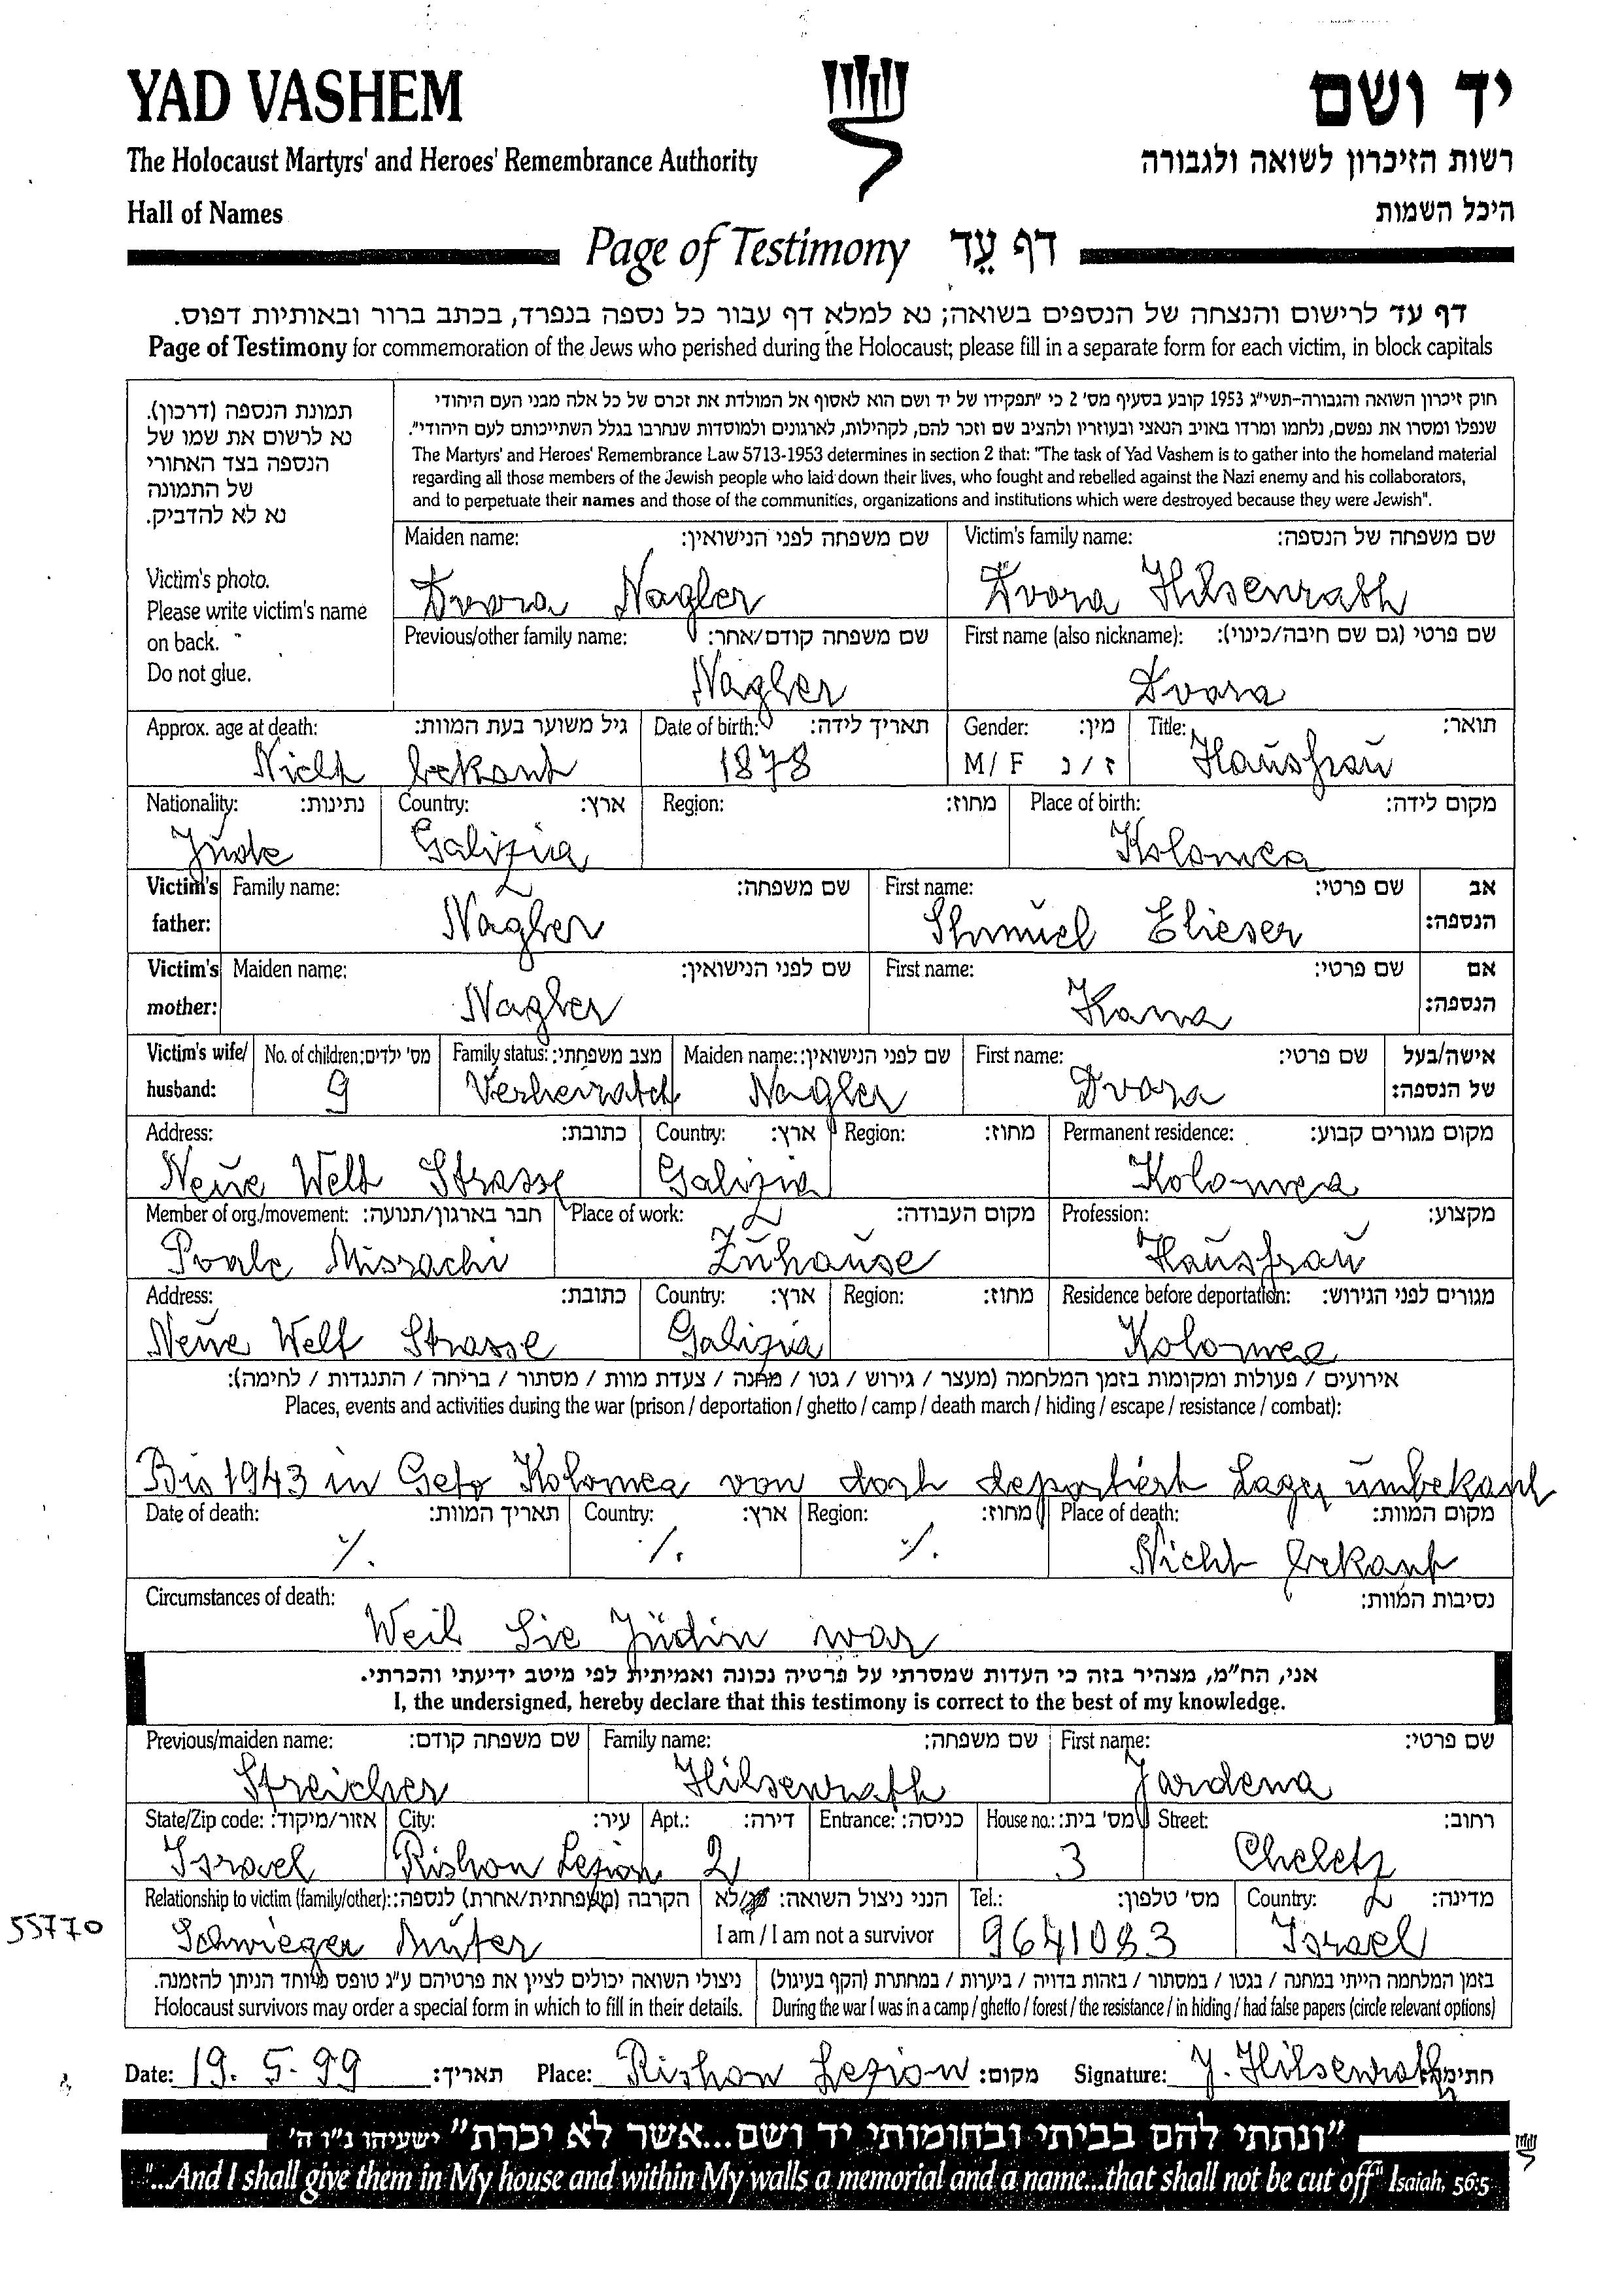 YAD VASHEM
יד ושם
The Holocaust Martyrs' and Heroes' Remembrance Authority
רשות הזיכרון לשואה ולגבורה
Hall of Names
היכל השמות
Page of Testimony דף עֵד
דף עד לרישום והנצחה של הנספים בשואה; נא למלא דף עבור כל נספה בנפרד, בכתב ברור ובאותיות דפוס.
Page of Testimony for commemoration of the Jews who perished during the Holocaust; please fill in a separate form for each victim, in block capitals
תמונת הנספה (דרכון).
נא לרשום את שמו של
הנספה בצד האחורי
של התמונה
נא לא להדביק.
Victim's photo.
Please write victim's name
on back.
Do not glue.
חוק זיכרון השואה והגבורה-תשי"ג 1953 קובע בסעיף מס' 2 כי "תפקידו של יד ושם הוא לאסוף אל המולדת את זכרם של כל אלה מבני העם היהודי
שנפלו ומסרו את נפשם, נלחמו ומרדו באויב הנאצי ובעוזריו ולהציב שם וזכר להם, לקהילות, לארגונים ולמוסדות שנחרבו בגלל השתייכותם לעם היהודי".
The Martyrs' and Heroes' Remembrance Law 5713-1953 determines in section 2 that: "The task of Yad Vashem is to gather into the homeland material
regarding all those members of the Jewish people who laid down their lives, who fought and rebelled against the Nazi enemy and his collaborators,
and to perpetuate their names and those of the communities, organizations and institutions which were destroyed because they were Jewish".
Maiden name: שם משפחה לפני הנישואין: Victim's family name: שם משפחה של הנספה:
Dvora Nagler Dvora Hilsenrath
Previous/other family name: שם משפחה קודם/אחר: First name (also nickname): שם פרטי (גם שם חיבה/כינוי):
Nagler Dvora
Approx. age at death: גיל משוער בעת המוות: Date of birth: תאריך לידה: Gender: מין: Title: תואר:
Nicht bekant 1878 M/ F ז / נ Haŭsfraŭ
Nationality: נתינות: Country: ארץ: Region: מחוז: Place of birth: מקום לידה:
Jŭde Galizia Kolomea
Victim's father: Family name: שם משפחה: First name: שם פרטי: אב הנספה:
Nagler Shmŭel Elieser
Victim's mother: Maiden name: שם לפני הנישואין: First name: שם פרטי: אם הנספה:
Nagler Hana
Victim's wife/ husband: No. of children: מס' ילדים: Family status: מצב משפחתי: Maiden name: שם לפני הנישואין: First name: שם פרטי: אישה/בעל של הנספה:
9 Verheiratet Nagler Dvora
Address: כתובת: Country: ארץ: Region: מחוז: Permanent residence: מקום מגורים קבוע:
Neŭe Welt Strasse Galizia Kolomea
Member of org./movement: חבר בארגון/תנועה: Place of work: מקום העבודה: Profession: מקצוע:
Poale Misrachi Zŭhaŭse Haŭsfraŭ
Address: כתובת: Country: ארץ: Region: מחוז: Residence before deportation: מגורים לפני הגירוש:
Neŭe Welt Strasse Galizia Kolomea
אירועים / פעולות ומקומות בזמן המלחמה (מעצר / גירוש / גטו / מחנה / צעדת מוות / מסתור / בריחה / התנגדות / לחימה):
Places, events and activities during the war (prison / deportation / ghetto / camp / death march / hiding / escape / resistance / combat):
Bis 1943 in Geto Kolomea von dort deportiert Lager ŭnbekant
Date of death: תאריך המוות: Country: ארץ: Region: מחוז: Place of death: מקום המוות:
·/. ·/. ·/. Nicht bekant
Circumstances of death: נסיבות המוות:
Weil Sie Jüdin war
אני, הח"מ, מצהיר בזה כי העדות שמסרתי על פרטיה נכונה ואמיתית לפי מיטב ידיעתי והכרתי.
I, the undersigned, hereby declare that this testimony is correct to the best of my knowledge.
Previous/maiden name: שם משפחה קודם: Family name: שם משפחה: First name: שם פרטי:
Streicher Hilsenrath Jardena
State/Zip code: אזור/מיקוד: City: עיר: Apt.: דירה: Entrance: כניסה: House no.: מס' בית: Street: רחוב:
Israel Rishon Lezion 2 3 Cheletz
Relationship to victim (family/other): הקרבה (משפחתית/אחרת) לנספה: הנני ניצול השואה: כן/לא Tel.: מס' טלפון: Country: מדינה:
55770 Schwieger Mŭter I am / I am not a survivor 9641083 Israel
ניצולי השואה יכולים לציין את פרטיהם ע"ג טופס מיוחד הניתן להזמנה. בזמן המלחמה הייתי במחנה / בגטו / במסתור / בזהות בדויה / ביערות / במחתרת (הקף בעיגול)
Holocaust survivors may order a special form in which to fill in their details. During the war I was in a camp / ghetto / forest / the resistance / in hiding / had false papers (circle relevant options)
Date: 19. 5. 99 תאריך: Place: Rishon Lezion מקום: Signature: J. Hilsenrath חתימה:
"ונתתי להם בביתי ובחומותי יד ושם...אשר לא יכרת" ישעיהו נ"ו ה'
"...And I shall give them in My house and within My walls a memorial and a name...that shall not be cut off" Isaiah, 56:5